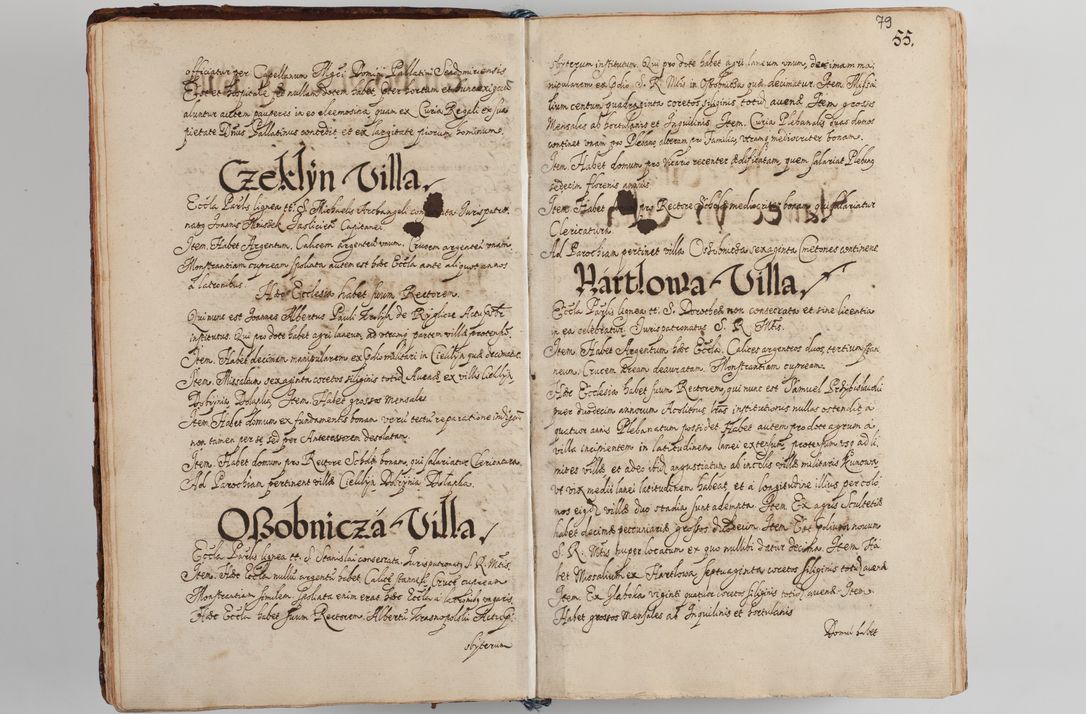 officiatur per Capellanum Mgci Domini Pallatini Sendomiriensis
Est et hospitale nullam dotem habet, preter hortum et
aluntur autem pauperes in eo eleemosina, quam ex Curia Regali ex sua
pietate Dnus Pallatinus concedit et ex largitate piorum hominum.
Czeklÿn Villa
Eccla Parlis lignea tt: S. Michaelis Archangeli Juris patro
natq Joanis Mnissek Capitanei
Item. Habet Argentum, Calicem argenteū vnum, Crucem argenteā vnam,
Monstrantiam cupream spoliata autem est hæc Eccla ante aliquot annos
a latronibus.
Hæc Ecclesia habet suum Rectorem.
Qui nunc est Joannes Albertus Pauli de Ryglice
Institutus. Qui pro dote habet agri laneum ad vtramq partem villæ protensū
Item. Habet decimam manipularem ex prædio militari in Ciekllyn quæ decimatur.
Item. Missalium sexaginta coretos siliginis totid Auenæ, ex villis Ciekllyn
Dobrynia Wolapka, Item. Habet grossos mensales
Item Habet domum ex fundamentis bonam verū tectū reparatione
non tamen per se sed per Antecessorem desolatam.
Item. Habet domum pro Rectore Scholæ bonam, qui salariatur Clericatura.
Ad Parochiam pertinent villæ Ciekllyn Dobrynia Wolapka.
Oßobnicza Villa
Eccla Parlis lignea tt. S. Stanislai consecrata, Juris patronatq S. R. Mtis.
Item. Hæc Eccla nullū argentū habet Calicē stanneū Crucē cupream
Monstrantiam similem spoliata enim erat hæc Eccla a latronibq vagaris
Hæc Eccla habet suum Rectorem. Albertū Krasnopolski
sbyterum
79
55.
sbyterum institutum. Qui pro dote habet agri laneum vnum, decimam ma
nipularem ex prædio S. R. Mtis in Osobnicza quæ decimatur. Item Missa
lium centum quadraginta coretos siliginis totid auenæ. Item grossos
Mensales ab hortulanis et Inquilinis. Item. Curia Plebanalis duas domos
continet vnam pro Plebano alteram pro Familia, vtramq mediocriter bonam.
Item Habet domum pro Vicario recenter ædificatam, quem salariat Plebang
sedecim florenis annuis
Item. Habet pro Rectore Scholæ mediocriter bonam qui salariatur
Clericatura.
Ad Parochiam pertinet villa Ossobnicza sexaginta Cmetones continens
Hártlowa Villa
Eccla Parlis lignea tt: S. Dorotheæ non consecrata et sine licentia
in ea celebratur. Juris patronatus S. R. Mtis.
Item. Habet Argentum hæc Eccla. Calices argenteos duos, tertium stan
neum, Crucem æream deauratam. Monstrantiam cupream.
Hæc Ecclesia habet suum Rectorem, qui nunc est Samuel
puer duodecim annorum Acolitus, lræs institutionis nullas ostendit, a
quatuor annis Plebanatum possidet. Habet autem pro dote agrum a
villa incipientem in latitudinem lanei extensum, protensum vsq ad li
mites villæ et adeo ibid angustiatum ab incolis villæ militaris Kunowa
vt vix medii lanei latitudinem habeat, et a longitudine illius per colo
nos eiqd villæ duo stadia sunt adempta. Item. Ex agris Scultetiæ
habet decimæ pecuniariæ grossos duodecim. Item Est nouum
S. R. Mtis nuper locatum ex quo nullibi datur decima. Item Ha
bet Missalium ex Harttlowa septuaginta coretos siliginis totid auenæ
Item Ex Głaboka viginti quatuor coretos siliginis totid auenæ. Item.
Habet grossos Mensales ab Inquilinis et hortulanis
Domū habet